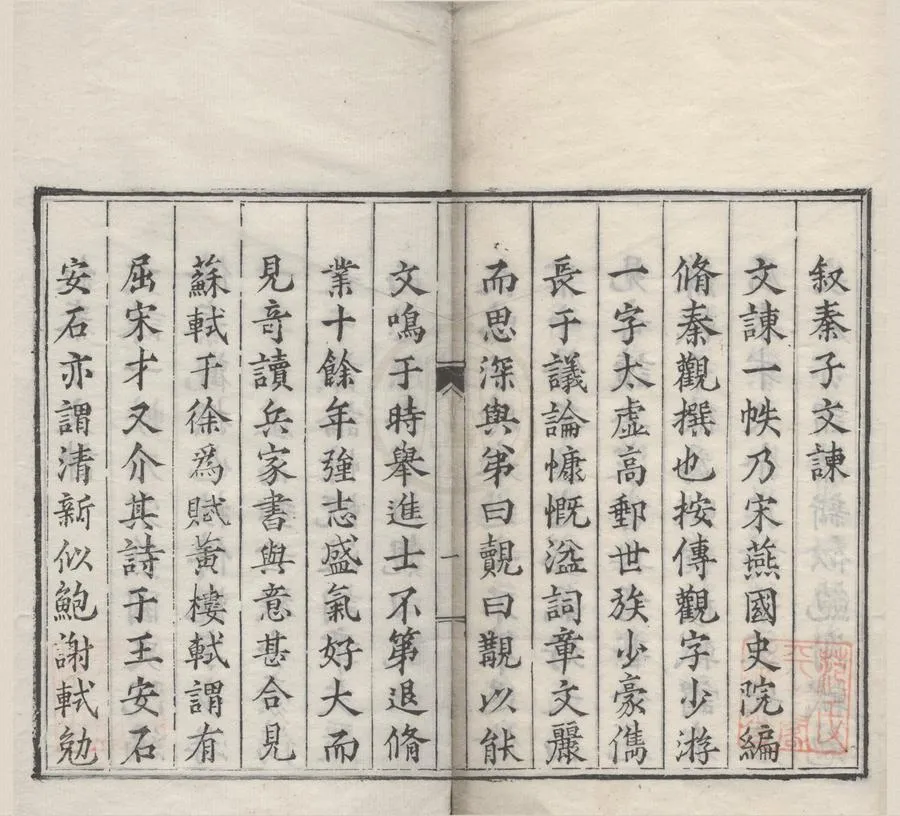 叙秦子文諫
文諫一帙乃宋燕國史院編
脩秦觀撰也按傳觀字少游
一字太虛高郵世族少豪儁
長于議論慷慨溢詞章文麗
而思深與弟曰覿曰覯以能
一
文鳴于時舉進士不第退脩
業十餘年強志盛氣好大而
見竒讀兵家書與意甚合見
蘇軾于徐爲賦黃樓軾謂有
屈宋才又介其詩于王安石
安石亦謂清新似鮑謝軾勉